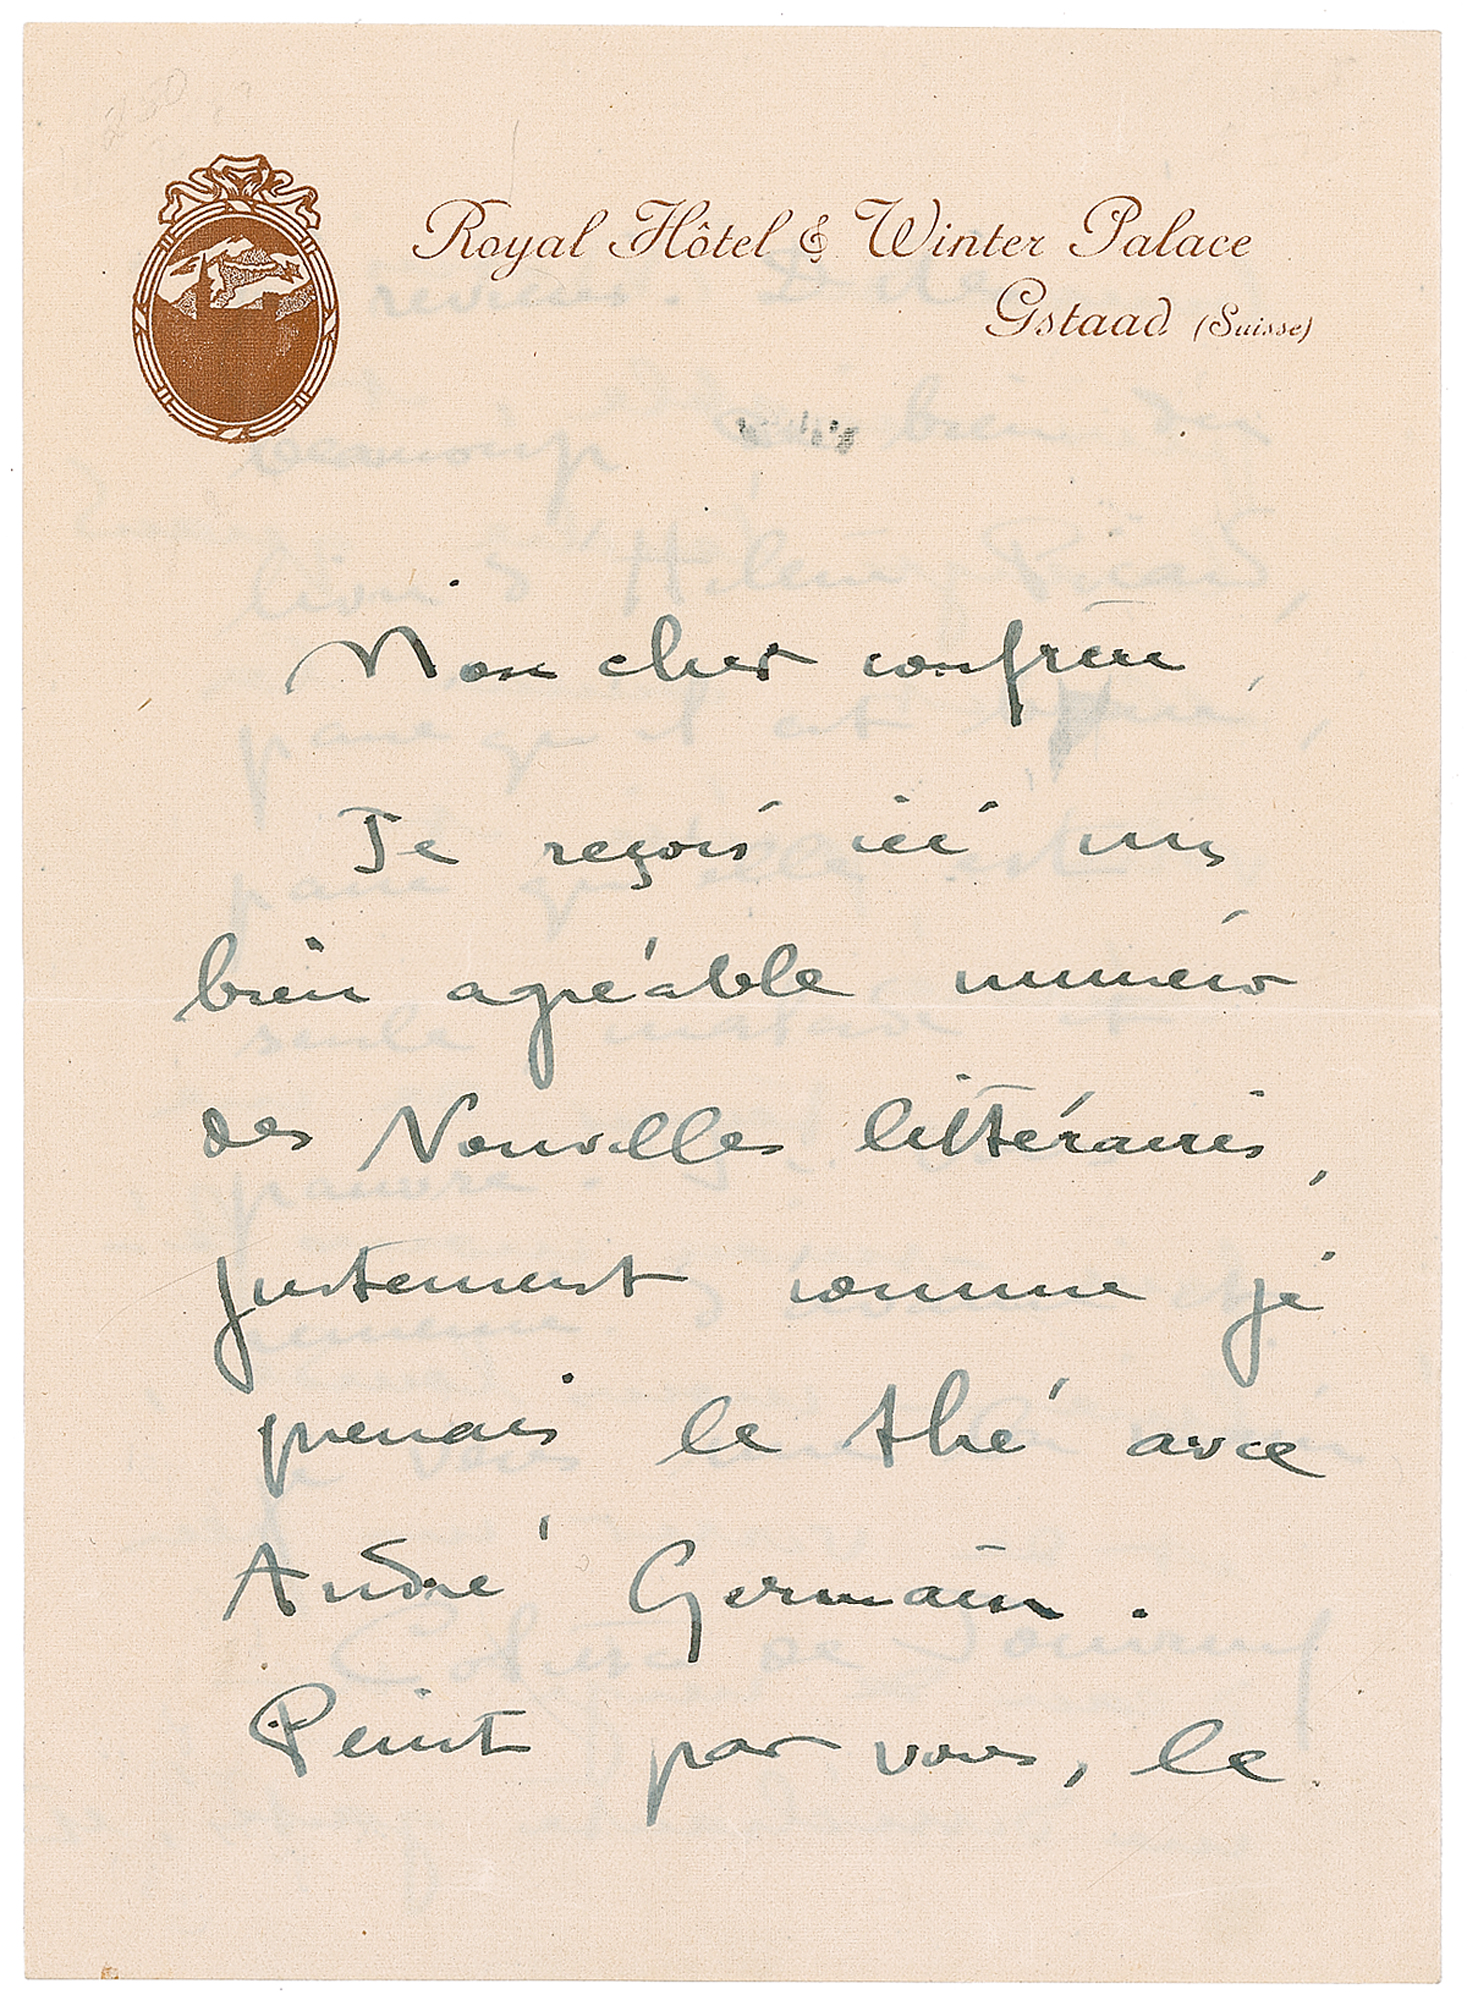 Royal Hôtel & Winter Palace
Gstaad (Suisse)
Mon cher confrère,
Je reçois ici un
bien agréable numéro
des Nouvelles littéraires,
justement comme je
prenais le thé avec
André Germain.
Peint par vous, le